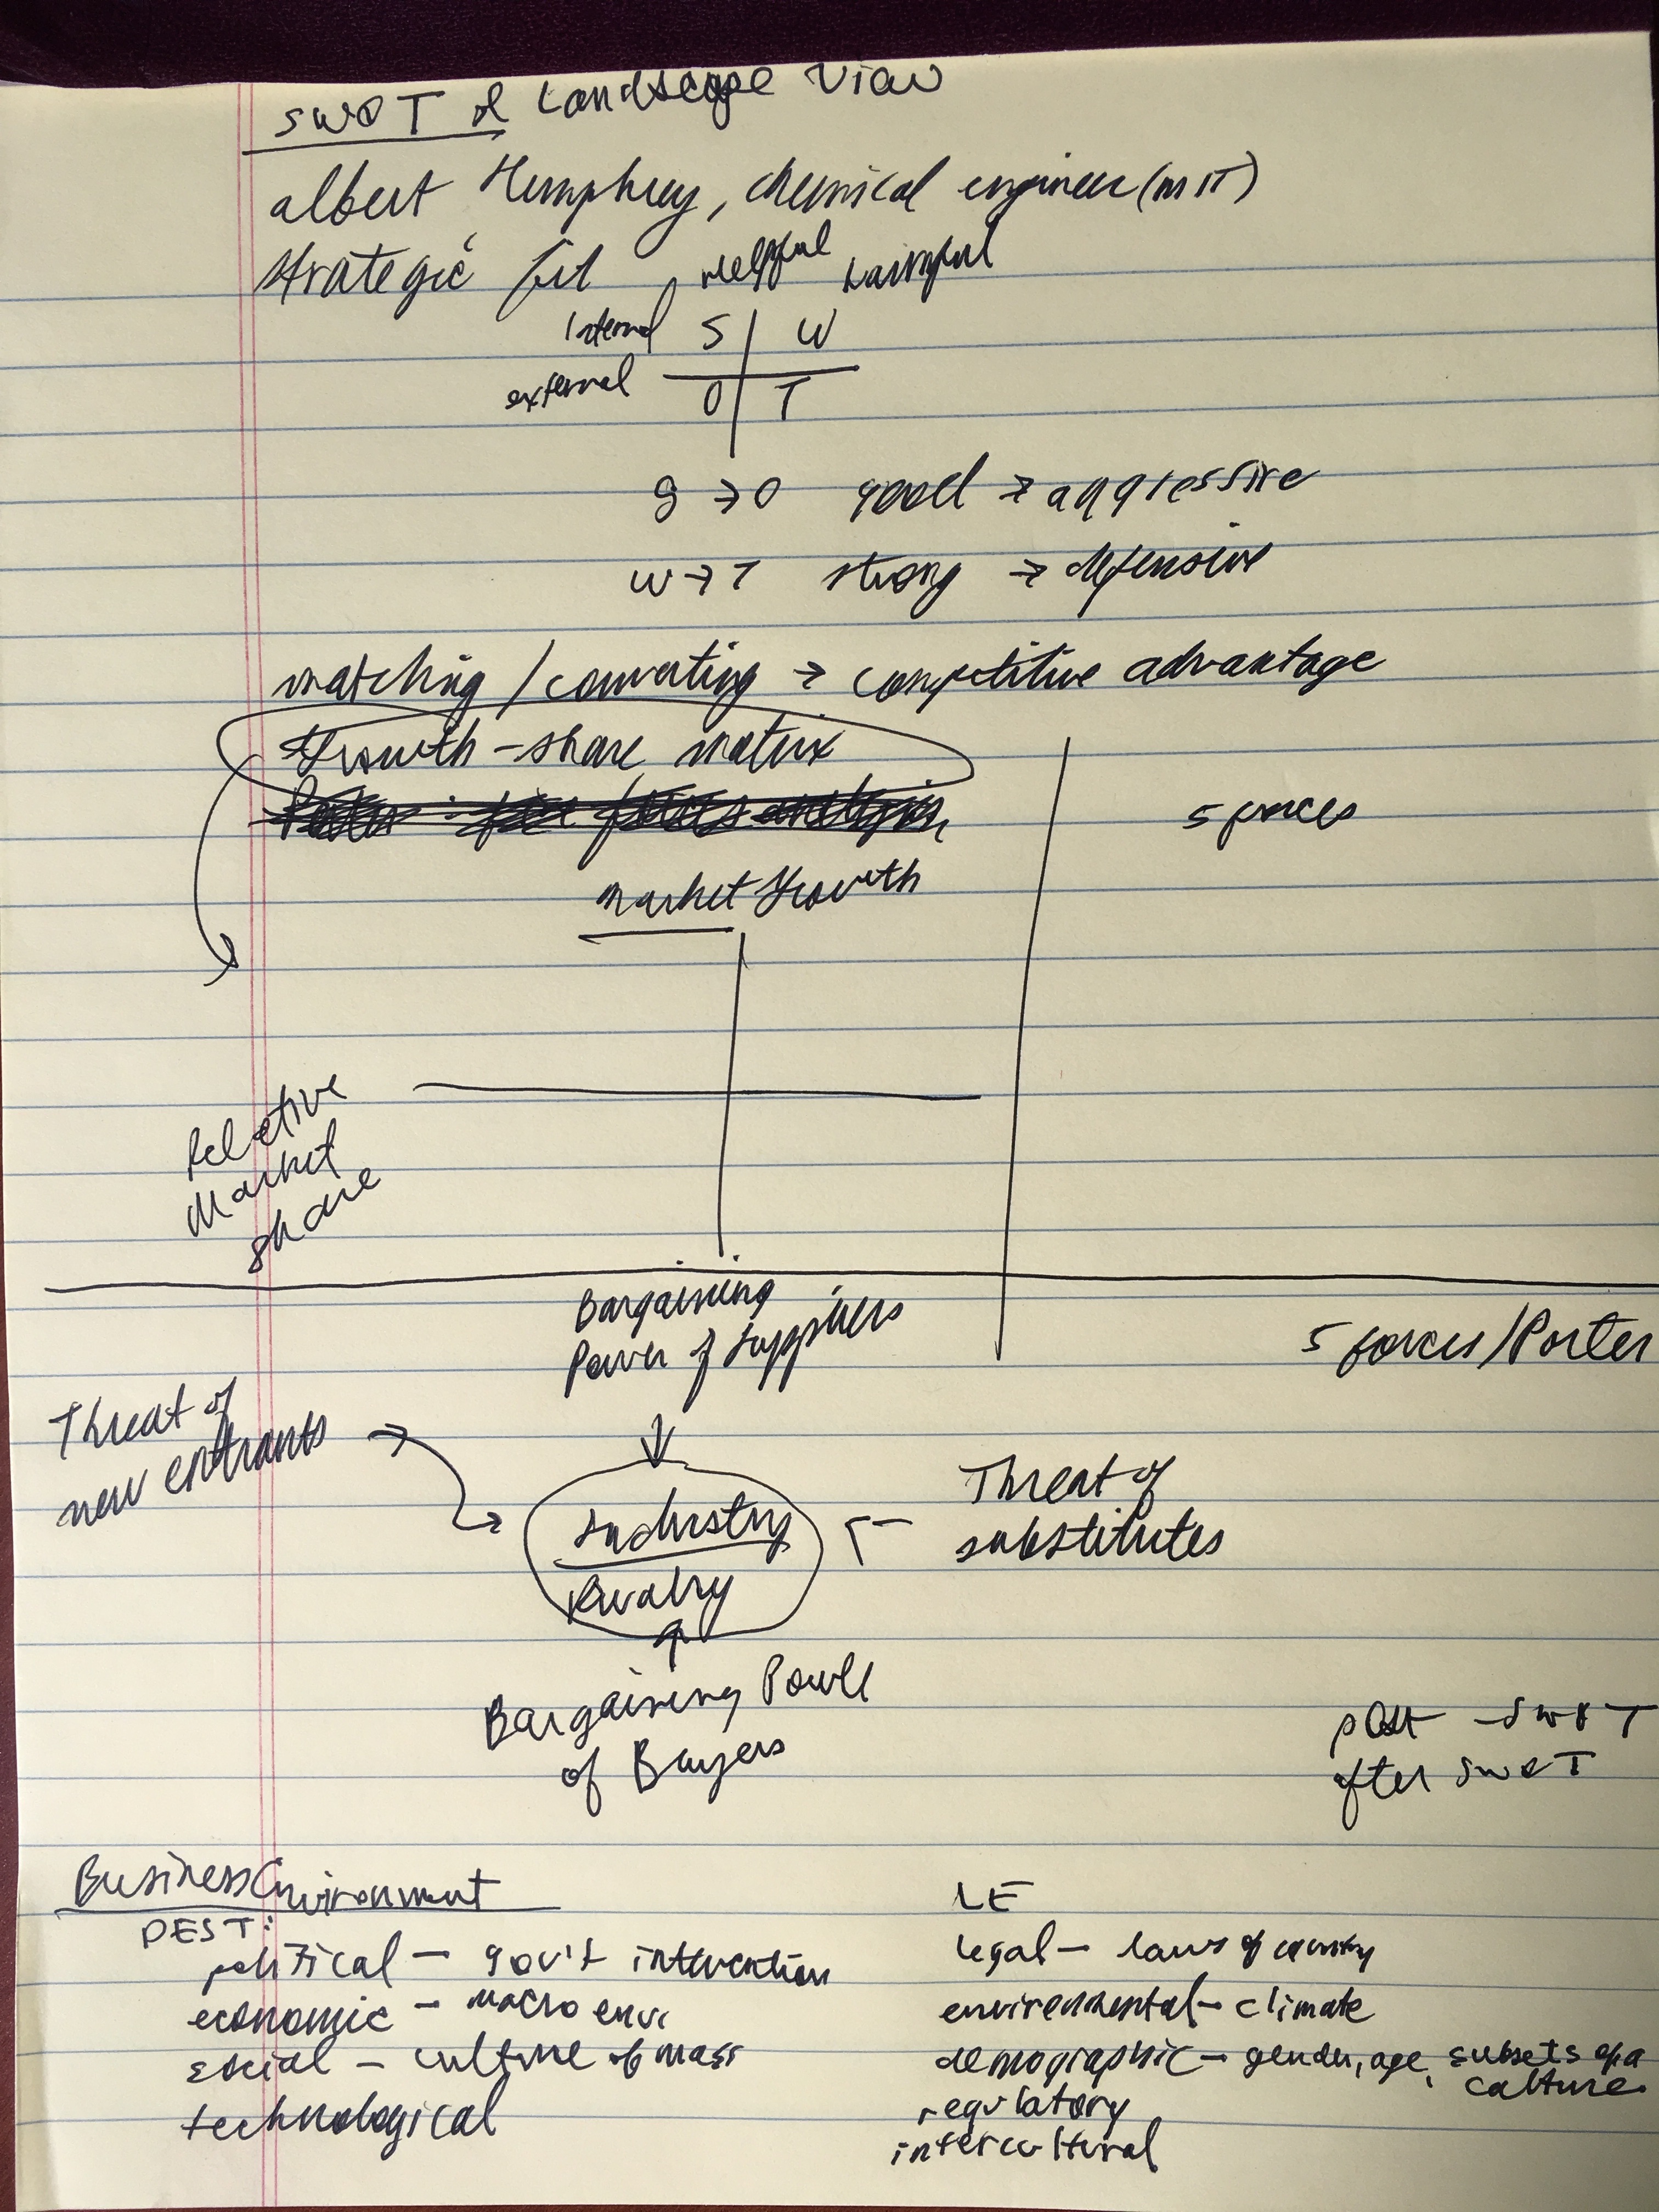 SWOT & Landscape View
albert Humphrey, chemical engineer (MIT)
strategic fit
helpful harmful
Internal S W
external O T
S → O good → aggressive
W → T strong → defensive
matching / converting → competitive advantage
Growth-share matrix
5 forces
Market Growth
Relative
Market
share
Bargaining
Power of suppliers
5 forces/Porter
Threat of
new entrants
Industry
Rivalry
Threat of
substitutes
Bargaining Power
of Buyers
-SWOT
after SWOT
Business Environment
PEST:
political – gov't intervention
economic – macro envi
social – culture of mass
technological
LE
legal – laws of country
environmental – climate
demographic – gender, age, subsets of a
culture
regulatory
intercultural